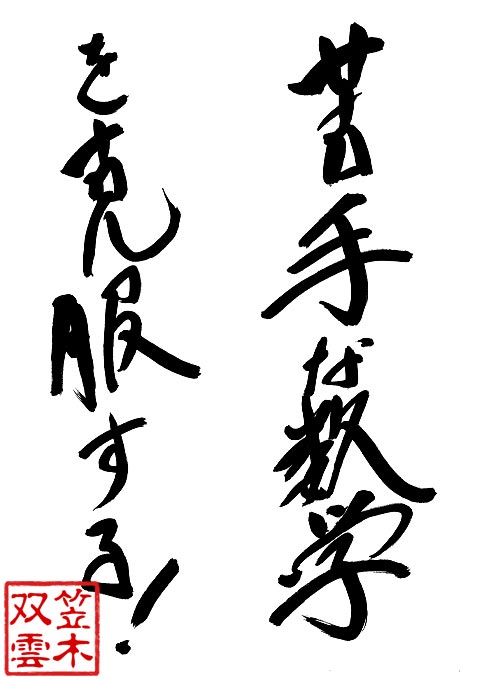 苦手な数学
を克服する!
笠木
双雲